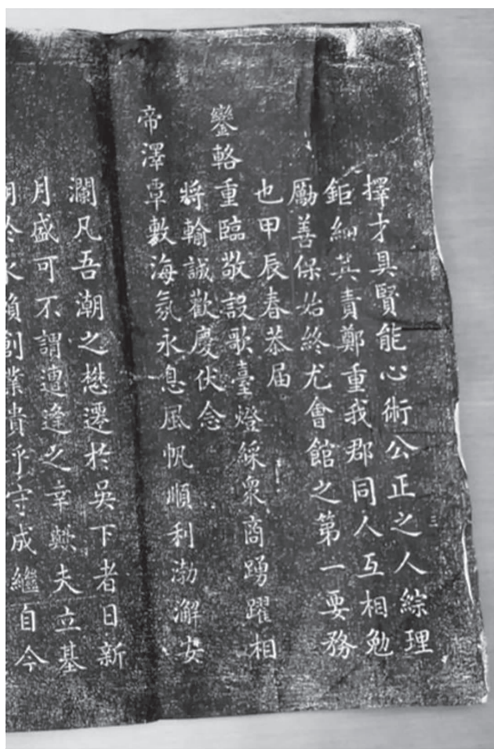 擇才具賢能心術公正之人綜理
鉅細其責鄭重我郡同人互相勉
勵善保始終尤會館之第一要務
也甲辰春恭届
鑾輅重臨敬設歌臺燈綵衆商踴躍相
將輸誠歡慶伏念
帝澤覃敷海氛永息風帆順利渤澥安
瀾凡吾潮之懋遷於吳下者日新
月盛可不謂遭逢之幸歟夫立基
於永賴創業貴乎守成繼自今